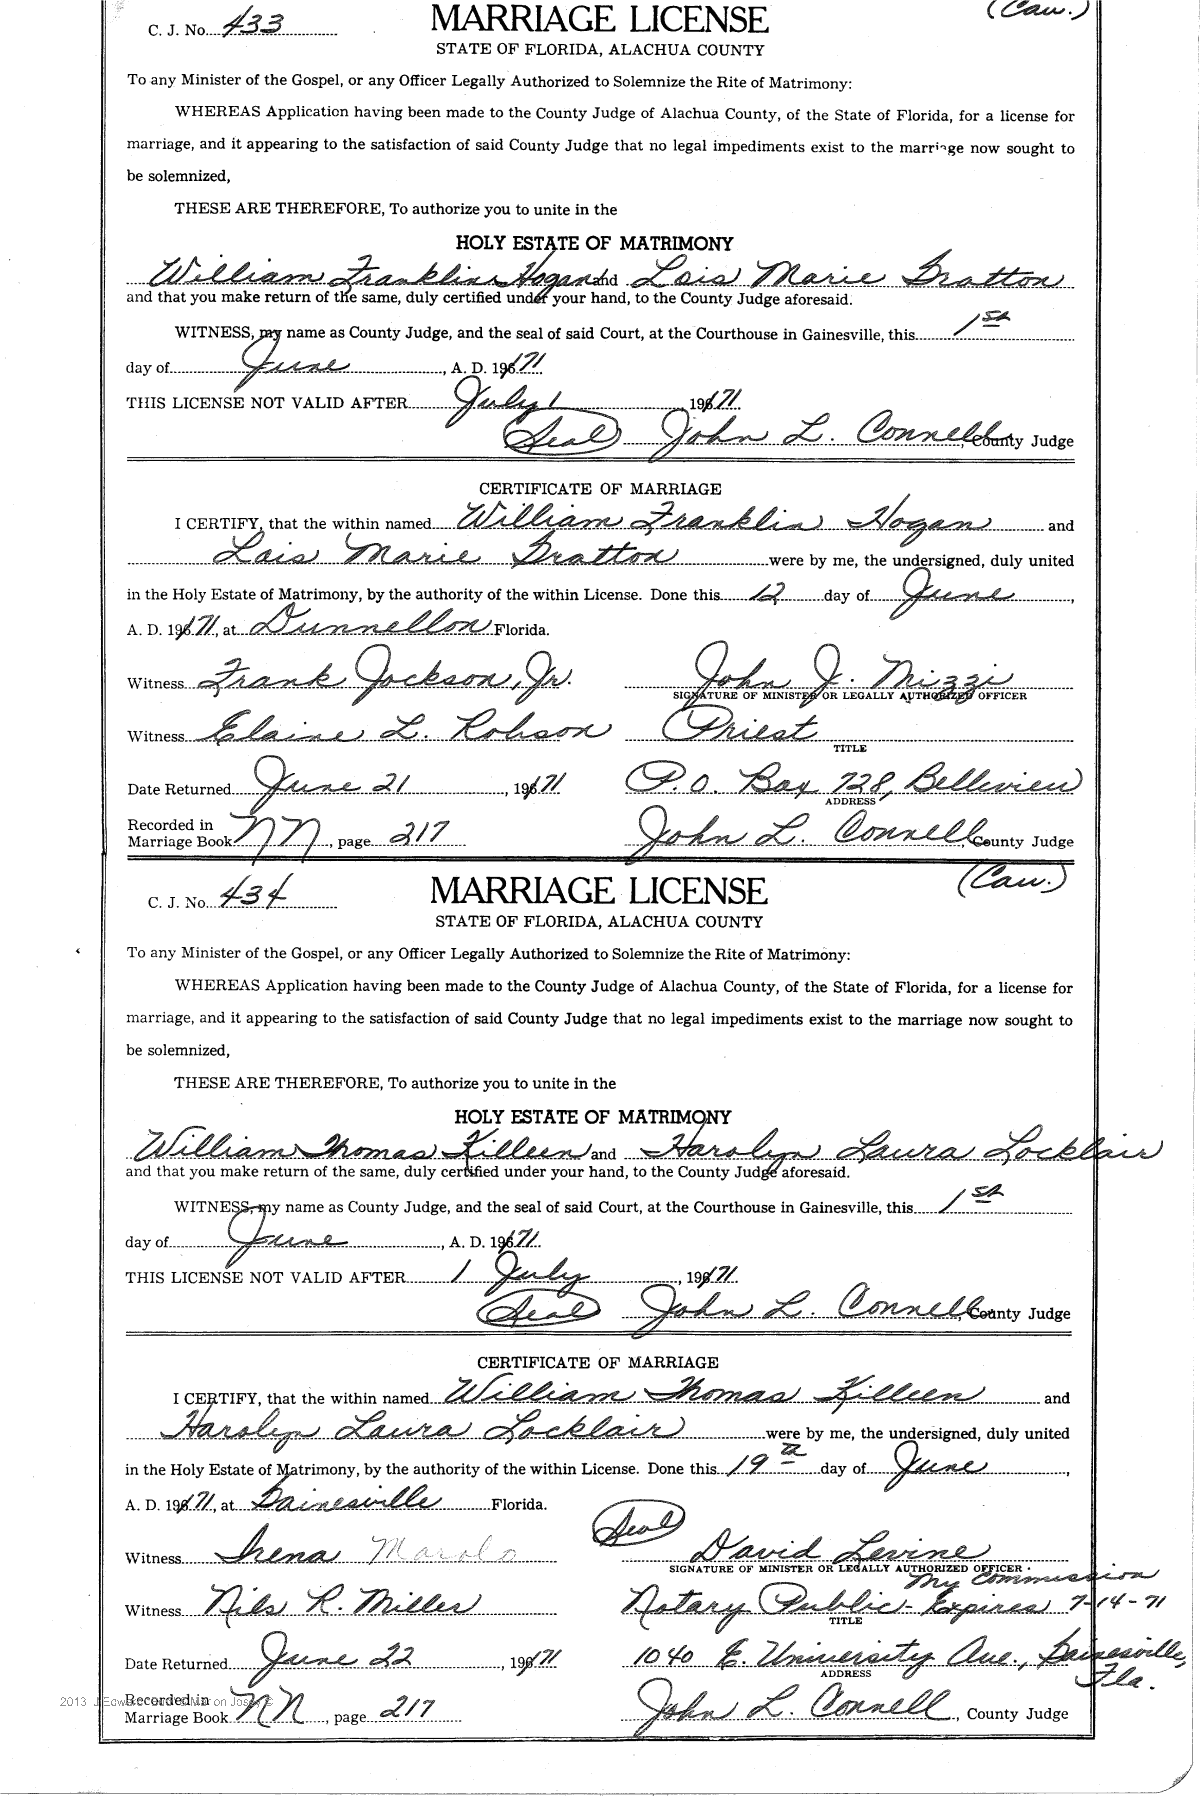 C. J. No. 433 MARRIAGE LICENSE (Cau.)
STATE OF FLORIDA, ALACHUA COUNTY
To any Minister of the Gospel, or any Officer Legally Authorized to Solemnize the Rite of Matrimony:
WHEREAS Application having been made to the County Judge of Alachua County, of the State of Florida, for a license for
marriage, and it appearing to the satisfaction of said County Judge that no legal impediments exist to the marriage now sought to
be solemnized,
THESE ARE THEREFORE, To authorize you to unite in the
HOLY ESTATE OF MATRIMONY
William Franklin Hogan and Lois Marie Gratton
and that you make return of the same, duly certified under your hand, to the County Judge aforesaid.
WITNESS, my name as County Judge, and the seal of said Court, at the Courthouse in Gainesville, this 1st
day of June, A. D. 1971
THIS LICENSE NOT VALID AFTER July 1 1971
(Seal) John L. Connell, County Judge
CERTIFICATE OF MARRIAGE
I CERTIFY, that the within named William Franklin Hogan and
Lois Marie Gratton were by me, the undersigned, duly united
in the Holy Estate of Matrimony, by the authority of the within License. Done this 12 day of June,
A. D. 1971, at Dunnellon Florida.
Witness Frank Jockson, Jr. John J. Mizzi
SIGNATURE OF MINISTER OR LEGALLY AUTHORIZED OFFICER
Witness Elaine L. Robson Priest
TITLE
Date Returned June 21, 1971 P.O. Box 728, Belleview
ADDRESS
Recorded in
Marriage Book NN, page 217 John L. Connell, County Judge
C. J. No. 434 MARRIAGE LICENSE (Cau.)
STATE OF FLORIDA, ALACHUA COUNTY
To any Minister of the Gospel, or any Officer Legally Authorized to Solemnize the Rite of Matrimony:
WHEREAS Application having been made to the County Judge of Alachua County, of the State of Florida, for a license for
marriage, and it appearing to the satisfaction of said County Judge that no legal impediments exist to the marriage now sought to
be solemnized,
THESE ARE THEREFORE, To authorize you to unite in the
HOLY ESTATE OF MATRIMONY
William Thomas Killeen and Harolyn Laura Locklair
and that you make return of the same, duly certified under your hand, to the County Judge aforesaid.
WITNESS, my name as County Judge, and the seal of said Court, at the Courthouse in Gainesville, this 1st
day of June, A. D. 1971
THIS LICENSE NOT VALID AFTER 1 July, 1971
(Seal) John L. Connell, County Judge
CERTIFICATE OF MARRIAGE
I CERTIFY, that the within named William Thomas Killeen and
Harolyn Laura Locklair were by me, the undersigned, duly united
in the Holy Estate of Matrimony, by the authority of the within License. Done this 19th day of June,
A. D. 1971, at Gainesville Florida.
(Seal)
Witness Irena David Levine
SIGNATURE OF MINISTER OR LEGALLY AUTHORIZED OFFICER
My Commission
Witness Nils R. Miller Notary Public - Expires 7-14-71
TITLE
Date Returned June 22, 1971 1040 E. University Ave., Gainesville,
ADDRESS Fla.
Recorded in
Marriage Book NN, page 217 John L. Connell, County Judge
2013